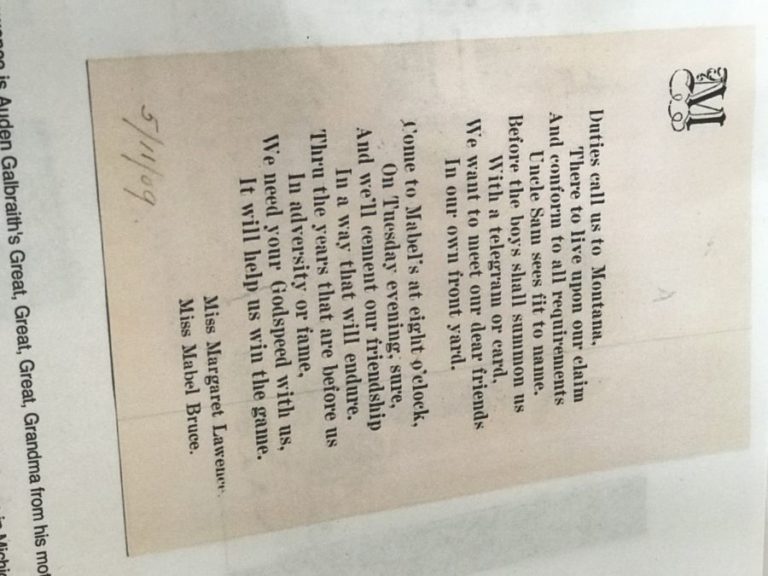 M
Duties call us to Montana,
There to live upon our claim
And conform to all requirements
Uncle Sam sees fit to name.
Before the boys shall summon us
With a telegram or card,
We want to meet our dear friends
In our own front yard.
Come to Mabel's at eight o'clock,
On Tuesday evening, sure,
And we'll cement our friendship
In a way that will endure.
Thru the years that are before us
In adversity or fame,
We need your Godspeed with us,
It will help us win the game.
Miss Margaret Lawence
Miss Mabel Bruce.
5/11/09.
is Auden Galbraith's Great, Great, Great, Grandma from his mot
in Michig